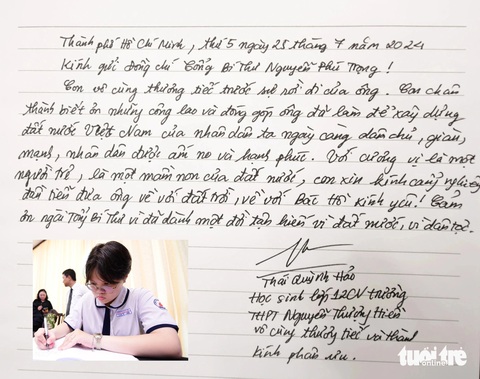 Thành phố Hồ Chí Minh, thứ 5 ngày 25 tháng 7 năm 2024
Kính gửi đồng chí Tổng Bí Thư Nguyễn Phú Trọng !
Con vô cùng thương tiếc trước sự rời đi của ông. Con chân
thành biết ơn những công lao và đóng góp ông đã làm để xây dựng
đất nước Việt Nam của nhân dân ta ngày càng dân chủ, giàu,
mạnh, nhân dân được ấm no và hạnh phúc. Với cương vị là một
người trẻ, là một mầm non của đất nước, con xin kính cẩn nghiêng
đầu tiễn đưa ông về với đất trời, về với Bác Hồ kính yêu! Cảm
ơn ngài Tổng Bí Thư vì đã dành một đời tận hiến vì đất nước, vì dân tộc.
Thái Quỳnh Hảo
Học sinh lớp 12CV trường
THPT Nguyễn Thượng Hiền
vô cùng thương tiếc và thành
kính phân ưu.
tuổi trẻ
online